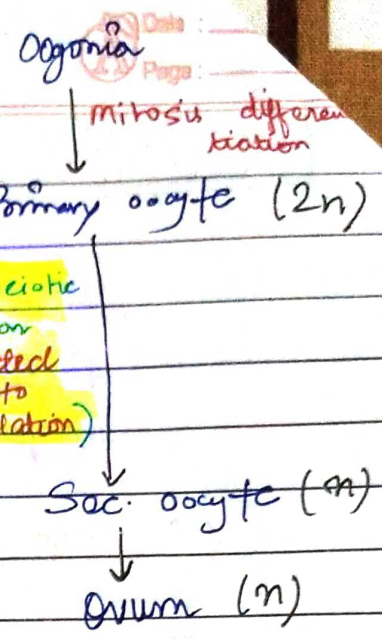 Date :
Oogonia
Page :
Mitosis differen
tiation
Primary oocyte (2n)
eiotic
on
ted
to
lation)
Sec. oocyte (n)
Ovum (n)